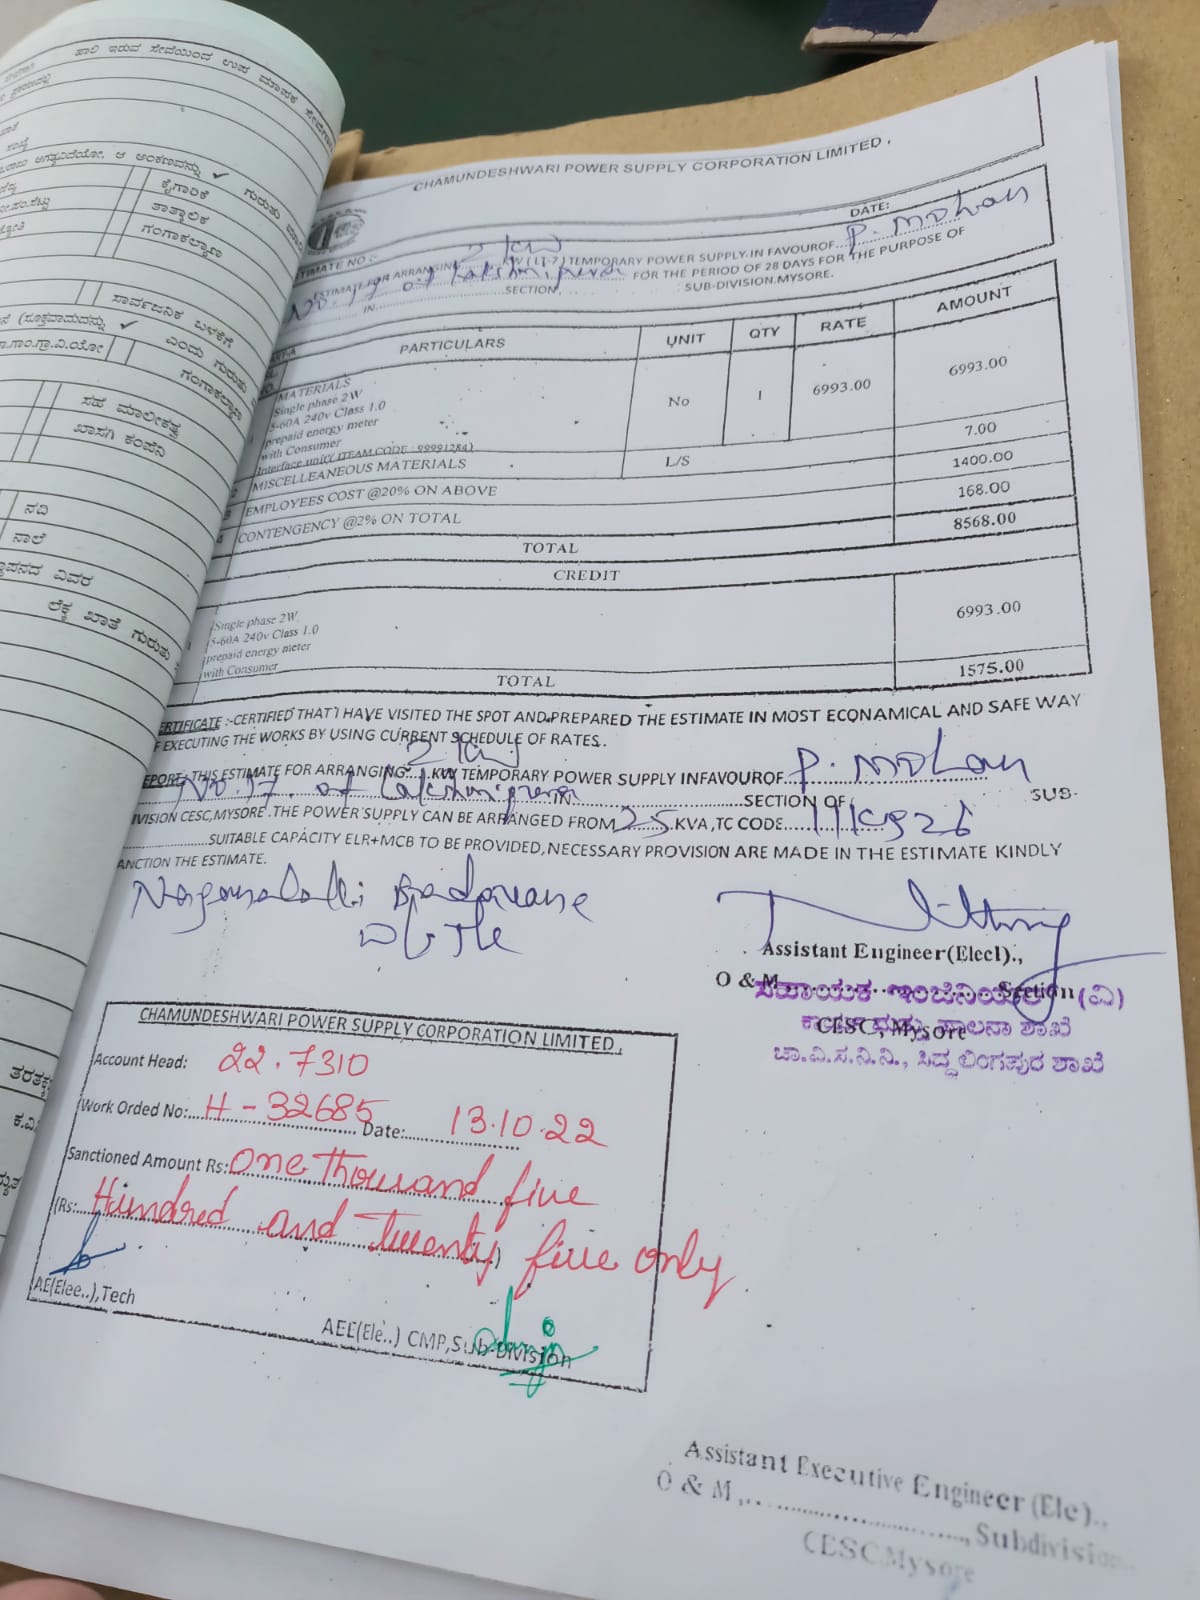 ಹಾಲಿ ಇರುವ ಸೇವೆಯಿಂದ ಉಪ ಮಾಪಕ
ಆ ಅಂಕಣವನ್ನು ✓ ಗುರುತು
ಕೈಗಾರಿಕೆ
ತಾತ್ಕಾಲಿಕ
ಗಂಗಾಕಲ್ಯಾಣ
ಸಾರ್ವಜನಿಕ ಬಳಕೆಗೆ
(ಸೂಕ್ತವಾದುದನ್ನು ✓ ಎಂದು ಗುರುತು
ಗಂಗಾಕಲ್ಯಾಣ
ಸಹ ಮಾಲೀಕತ್ವ
ಖಾಸಗಿ ಕಂಪೆನಿ
ನದಿ
ನಾಲೆ
ವಿವರ
ಲೆಕ್ಕ ಖಾತೆ ಗುರುತು
CHAMUNDESHWARI POWER SUPPLY CORPORATION LIMITED,
DATE:
ESTIMATE NO :-
ESTIMATE FOR ARRANGING 2 KW KW (LT-7) TEMPORARY POWER SUPPLY.IN FAVOUROF P. Mohan
No. 17 of Lakshmipura FOR THE PERIOD OF 28 DAYS FOR THE PURPOSE OF
IN SECTION, SUB-DIVISION.MYSORE.
PARTICULARS UNIT QTY RATE AMOUNT
MATERIALS
Single phase 2W
5-60A 240v Class 1.0
prepaid energy meter
with Consumer
Interface unit( ITEAM CODE : 99991284)
No 1 6993.00 6993.00
2 MISCELLEANEOUS MATERIALS L/S 7.00
3 EMPLOYEES COST @20% ON ABOVE 1400.00
4 CONTENGENCY @2% ON TOTAL 168.00
TOTAL 8568.00
CREDIT
Single phase 2W
5-60A 240v Class 1.0
prepaid energy meter
with Consumer
6993.00
TOTAL 1575.00
CERTIFICATE :-CERTIFIED THAT I HAVE VISITED THE SPOT AND PREPARED THE ESTIMATE IN MOST ECONAMICAL AND SAFE WAY
OF EXECUTING THE WORKS BY USING CURRENT SCHEDULE OF RATES..
REPORT : THIS ESTIMATE FOR ARRANGING 2 KW KW TEMPORARY POWER SUPPLY INFAVOUROF P. Mohan
No. 17. of Lakshmipura IN SECTION OF SUB-
DIVISION CESC,MYSORE.THE POWER SUPPLY CAN BE ARRANGED FROM 25 KVA,TC CODE
SUITABLE CAPACITY ELR+MCB TO BE PROVIDED,NECESSARY PROVISION ARE MADE IN THE ESTIMATE KINDLY
SANCTION THE ESTIMATE.
Assistant Engineer(Elecl).,
O & M, Section
CESC, Mysore
ಸಹಾಯಕ ಇಂಜಿನಿಯರ್ (ವಿ)
ಕಾರ್ಯ ಮತ್ತು ಪಾಲನಾ ಶಾಖೆ
ಚಾ.ವಿ.ಸ.ನಿ.ನಿ., ಸಿದ್ದಲಿಂಗಪುರ ಶಾಖೆ
CHAMUNDESHWARI POWER SUPPLY CORPORATION LIMITED,
Account Head: 22.7310
Work Orded No: H - 32685 Date: 13.10.22
Sanctioned Amount Rs: One thousand five
(Rs: Hundred and Twenty five only )
AE(Elee..),Tech
AEE(Ele..) CMP,Sub-Division
Assistant Executive Engineer (Ele)..
O & M, Subdivision
CESC,Mysore